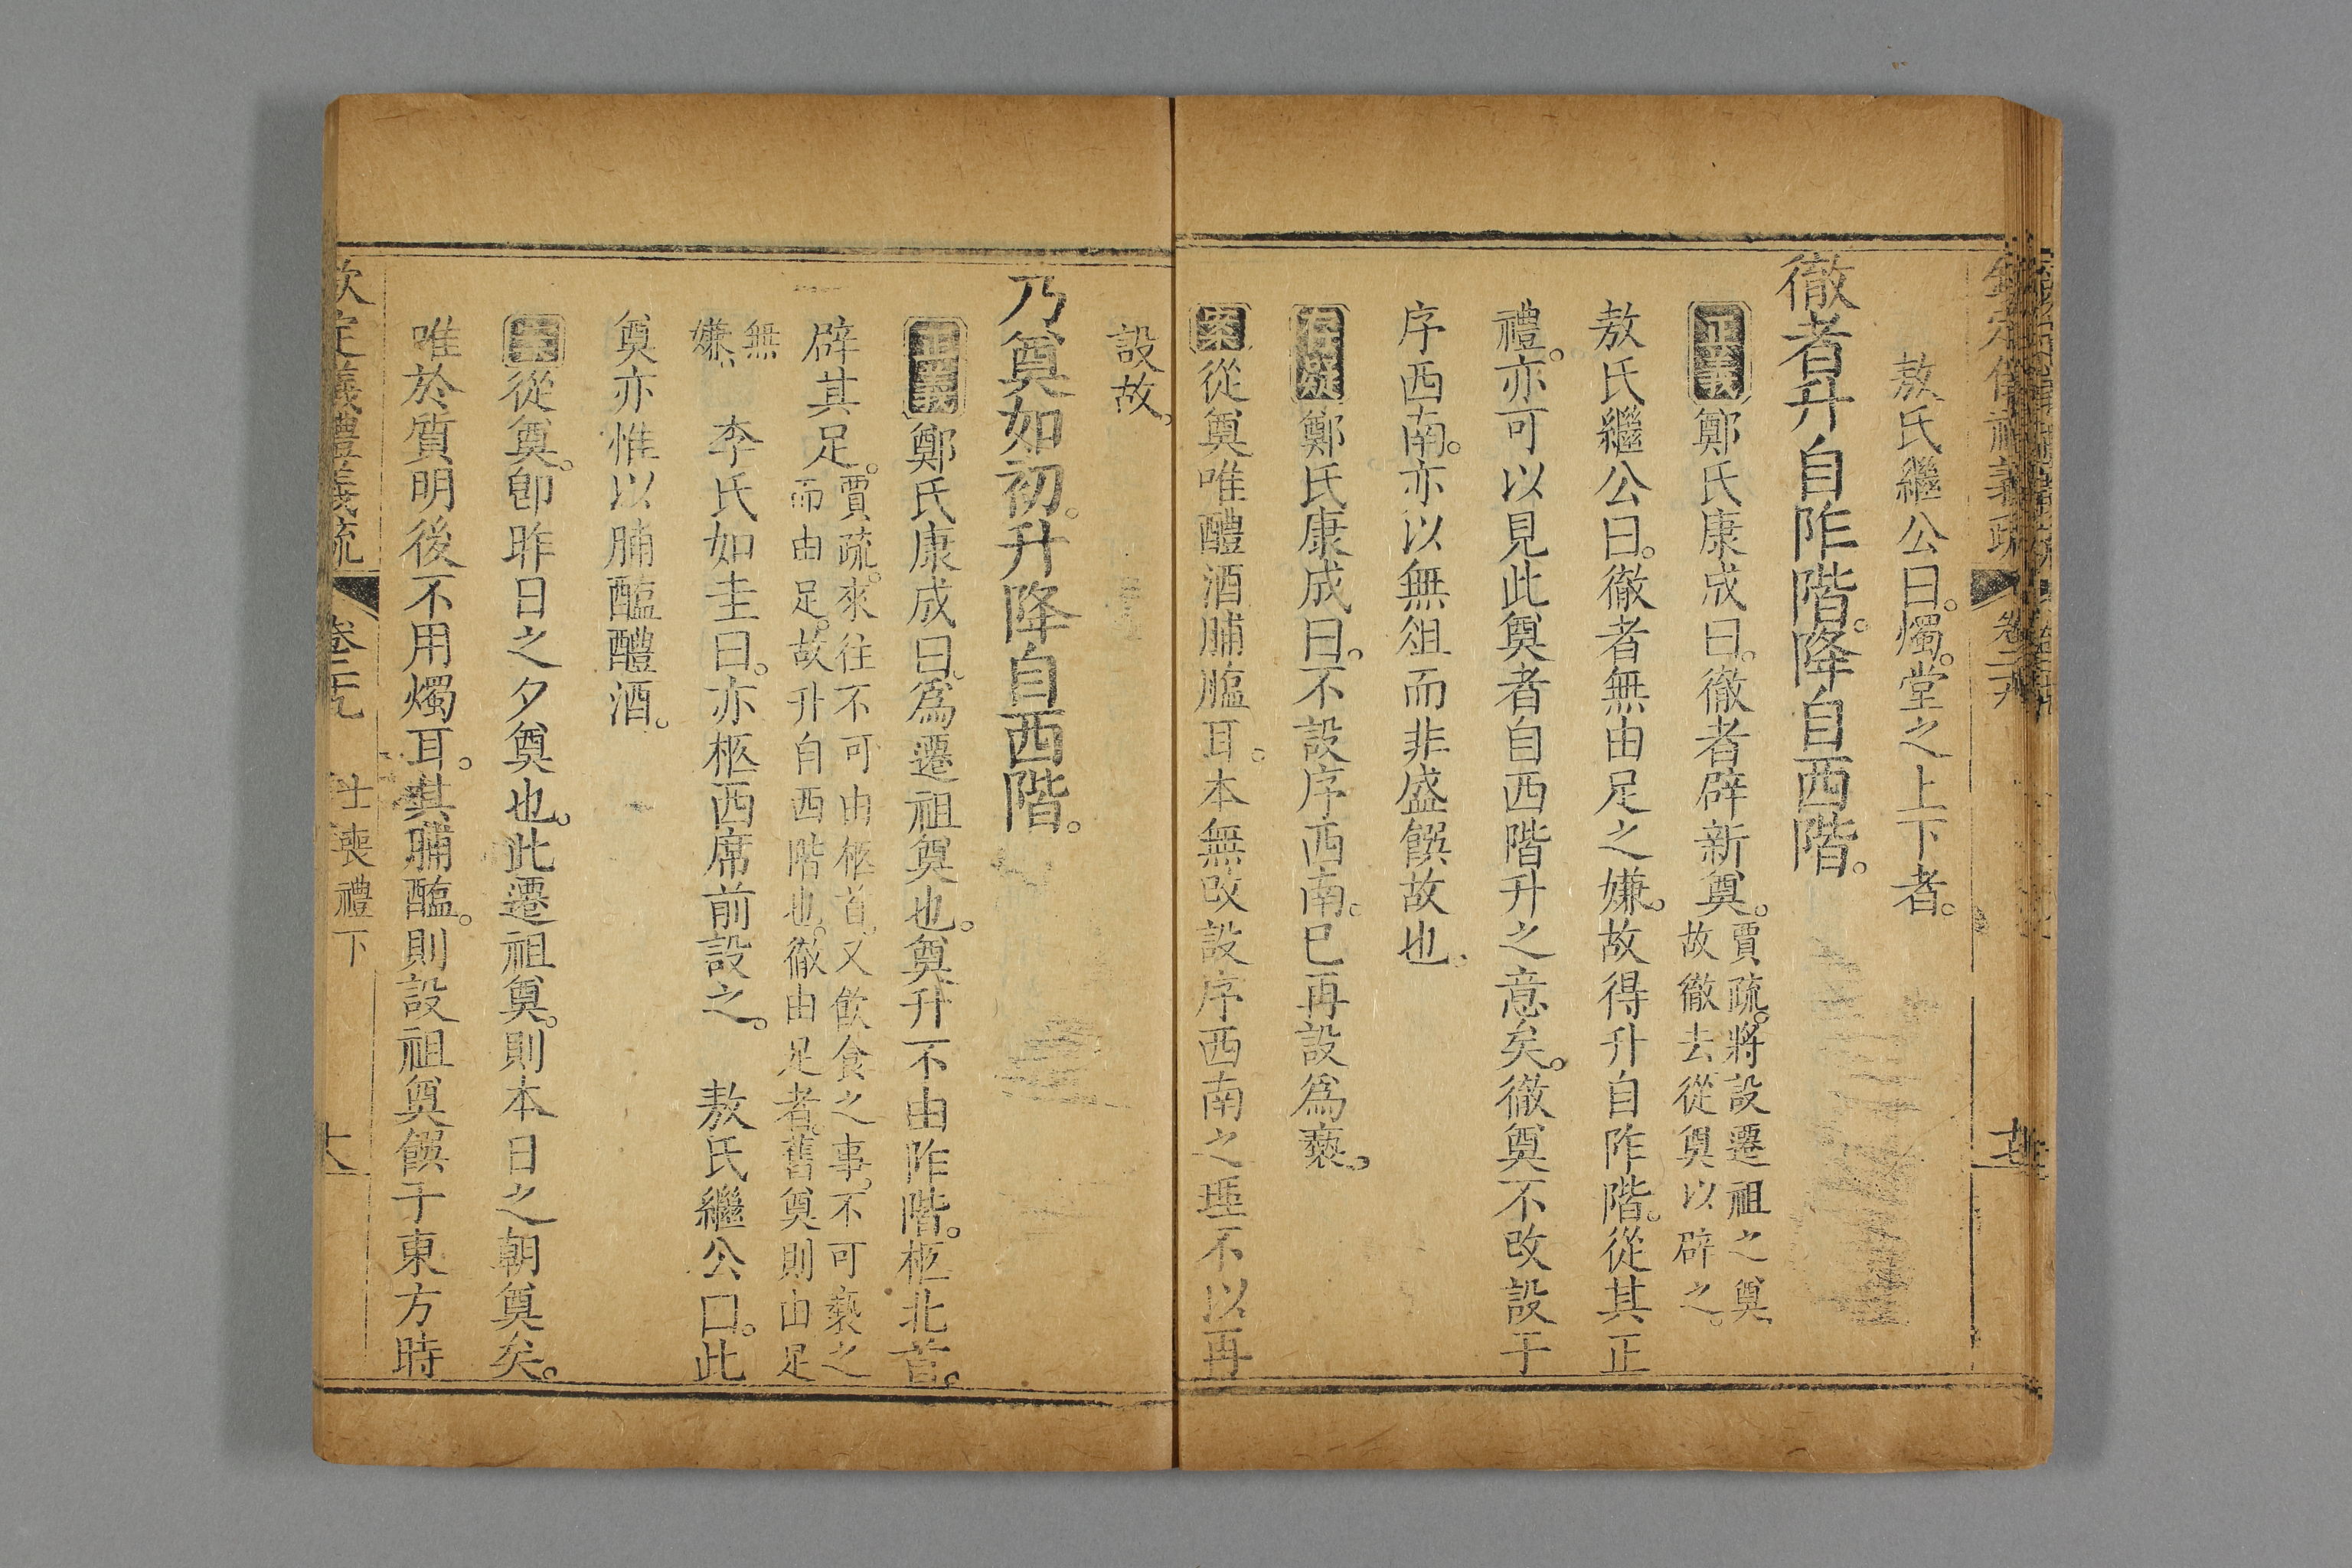 敖氏繼公曰。燭。堂之上下者。
徹者升自阼階。降自西階。
正義鄭氏康成曰。徹者辟新奠。賈疏。將設遷祖之奠。故徹去從奠以辟之。
敖氏繼公曰。徹者無由足之嫌。故得升自阼階。從其正
禮。亦可以見此奠者自西階升之意矣。徹奠不改設于
序西南。亦以無俎而非盛饌故也。
存疑鄭氏康成曰。不設序西南。已再設爲褻。
案從奠唯醴酒脯醢耳。本無改設序西南之理不以再
設故。
乃奠如初。升降自西階。
正義鄭氏康成曰。爲遷祖奠也。奠升不由阼階。柩北首。
辟其足。賈疏。來往不可由柩首。又飲食之事。不可褻之而由足。故升自西階也。徹由足者。舊奠則由足
無嫌。 李氏如圭曰。亦柩西席前設之。 敖氏繼公曰。此
奠亦惟以脯醢醴酒。
案從奠。卽昨日之夕奠也。此遷祖奠。則本日之朝奠矣。
唯於質明後不用燭耳。其脯醢。則設祖奠饌于東方時
欽定儀禮義疏 卷二九 士喪禮下